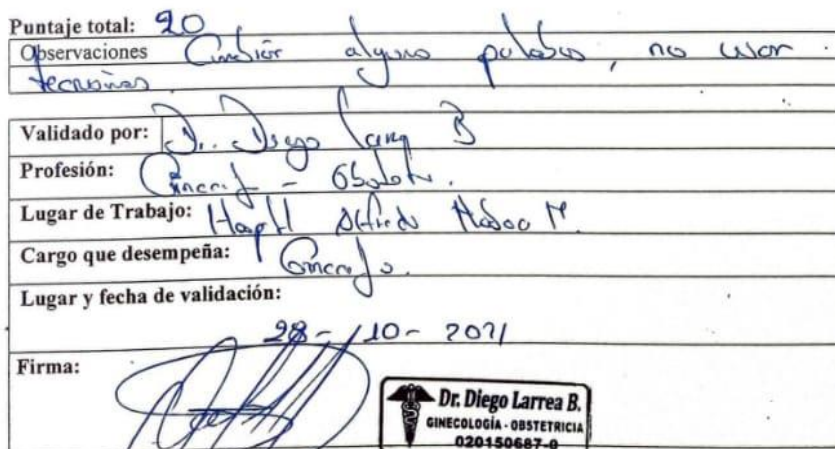 Puntaje total: 20
Observaciones Cambiar alguna palabra, no usar
tecnicismos.
Validado por: Dr. Diego Larrea B
Profesión: Ginecólogo - Obstetra.
Lugar de Trabajo: Hospital Alfredo Noboa M.
Cargo que desempeña: Ginecólogo.
Lugar y fecha de validación:
28-10-2021
Firma:
Dr. Diego Larrea B.
GINECOLOGÍA - OBSTETRICIA
020150687-0